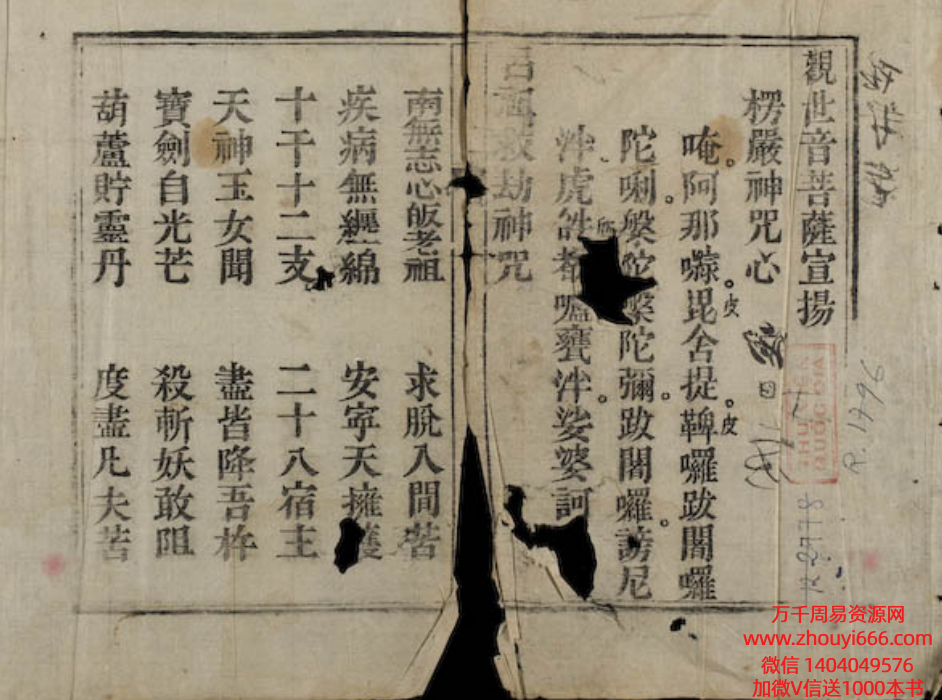 觀世音菩薩宣揚
楞嚴神咒心
唵。阿那㘑。毘舍提。鞞囉跋闍囉
陀唎。槃陀槃陀彌。跋闍囉。謗尼
泮。虎𤙖都嚧甕泮。娑婆訶
救劫神咒
南無志心皈老祖 求脫人間苦
疾病無纏綿 安寧天擁護
十干十二支 二十八宿主
天神玉女聞 盡皆降吾杵
寶劍自光芒 殺斬妖敢阻
葫蘆貯靈丹 度盡凡夫苦
皮
皮
R.1796
万千周易资源网
www.zhouyi666.com
微信 1404049576
加微V信送1000本书